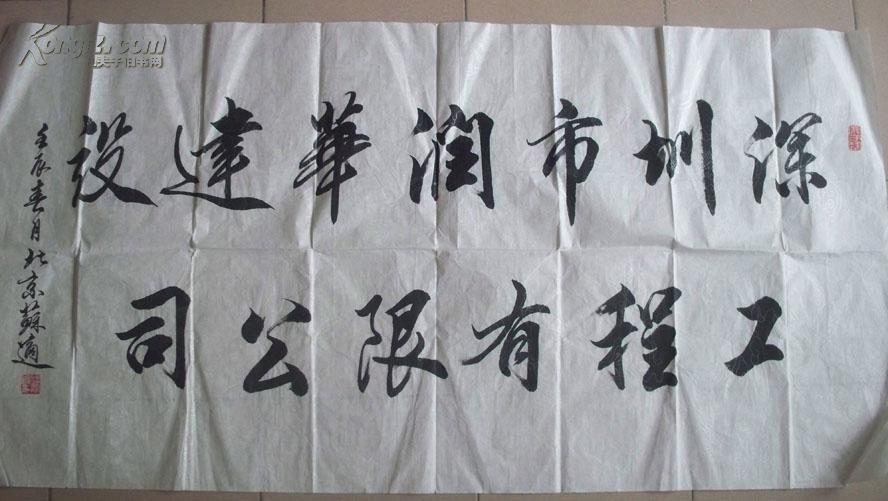 深圳市润華建设
工程有限公司
壬辰春月北京蘇適
Kongfz.com
孔夫子旧书网